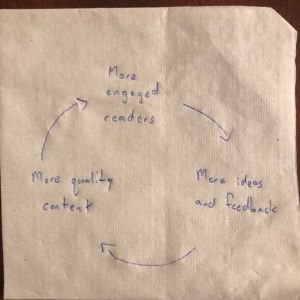 More
engaged
readers
More ideas
and feedback
More quality
content